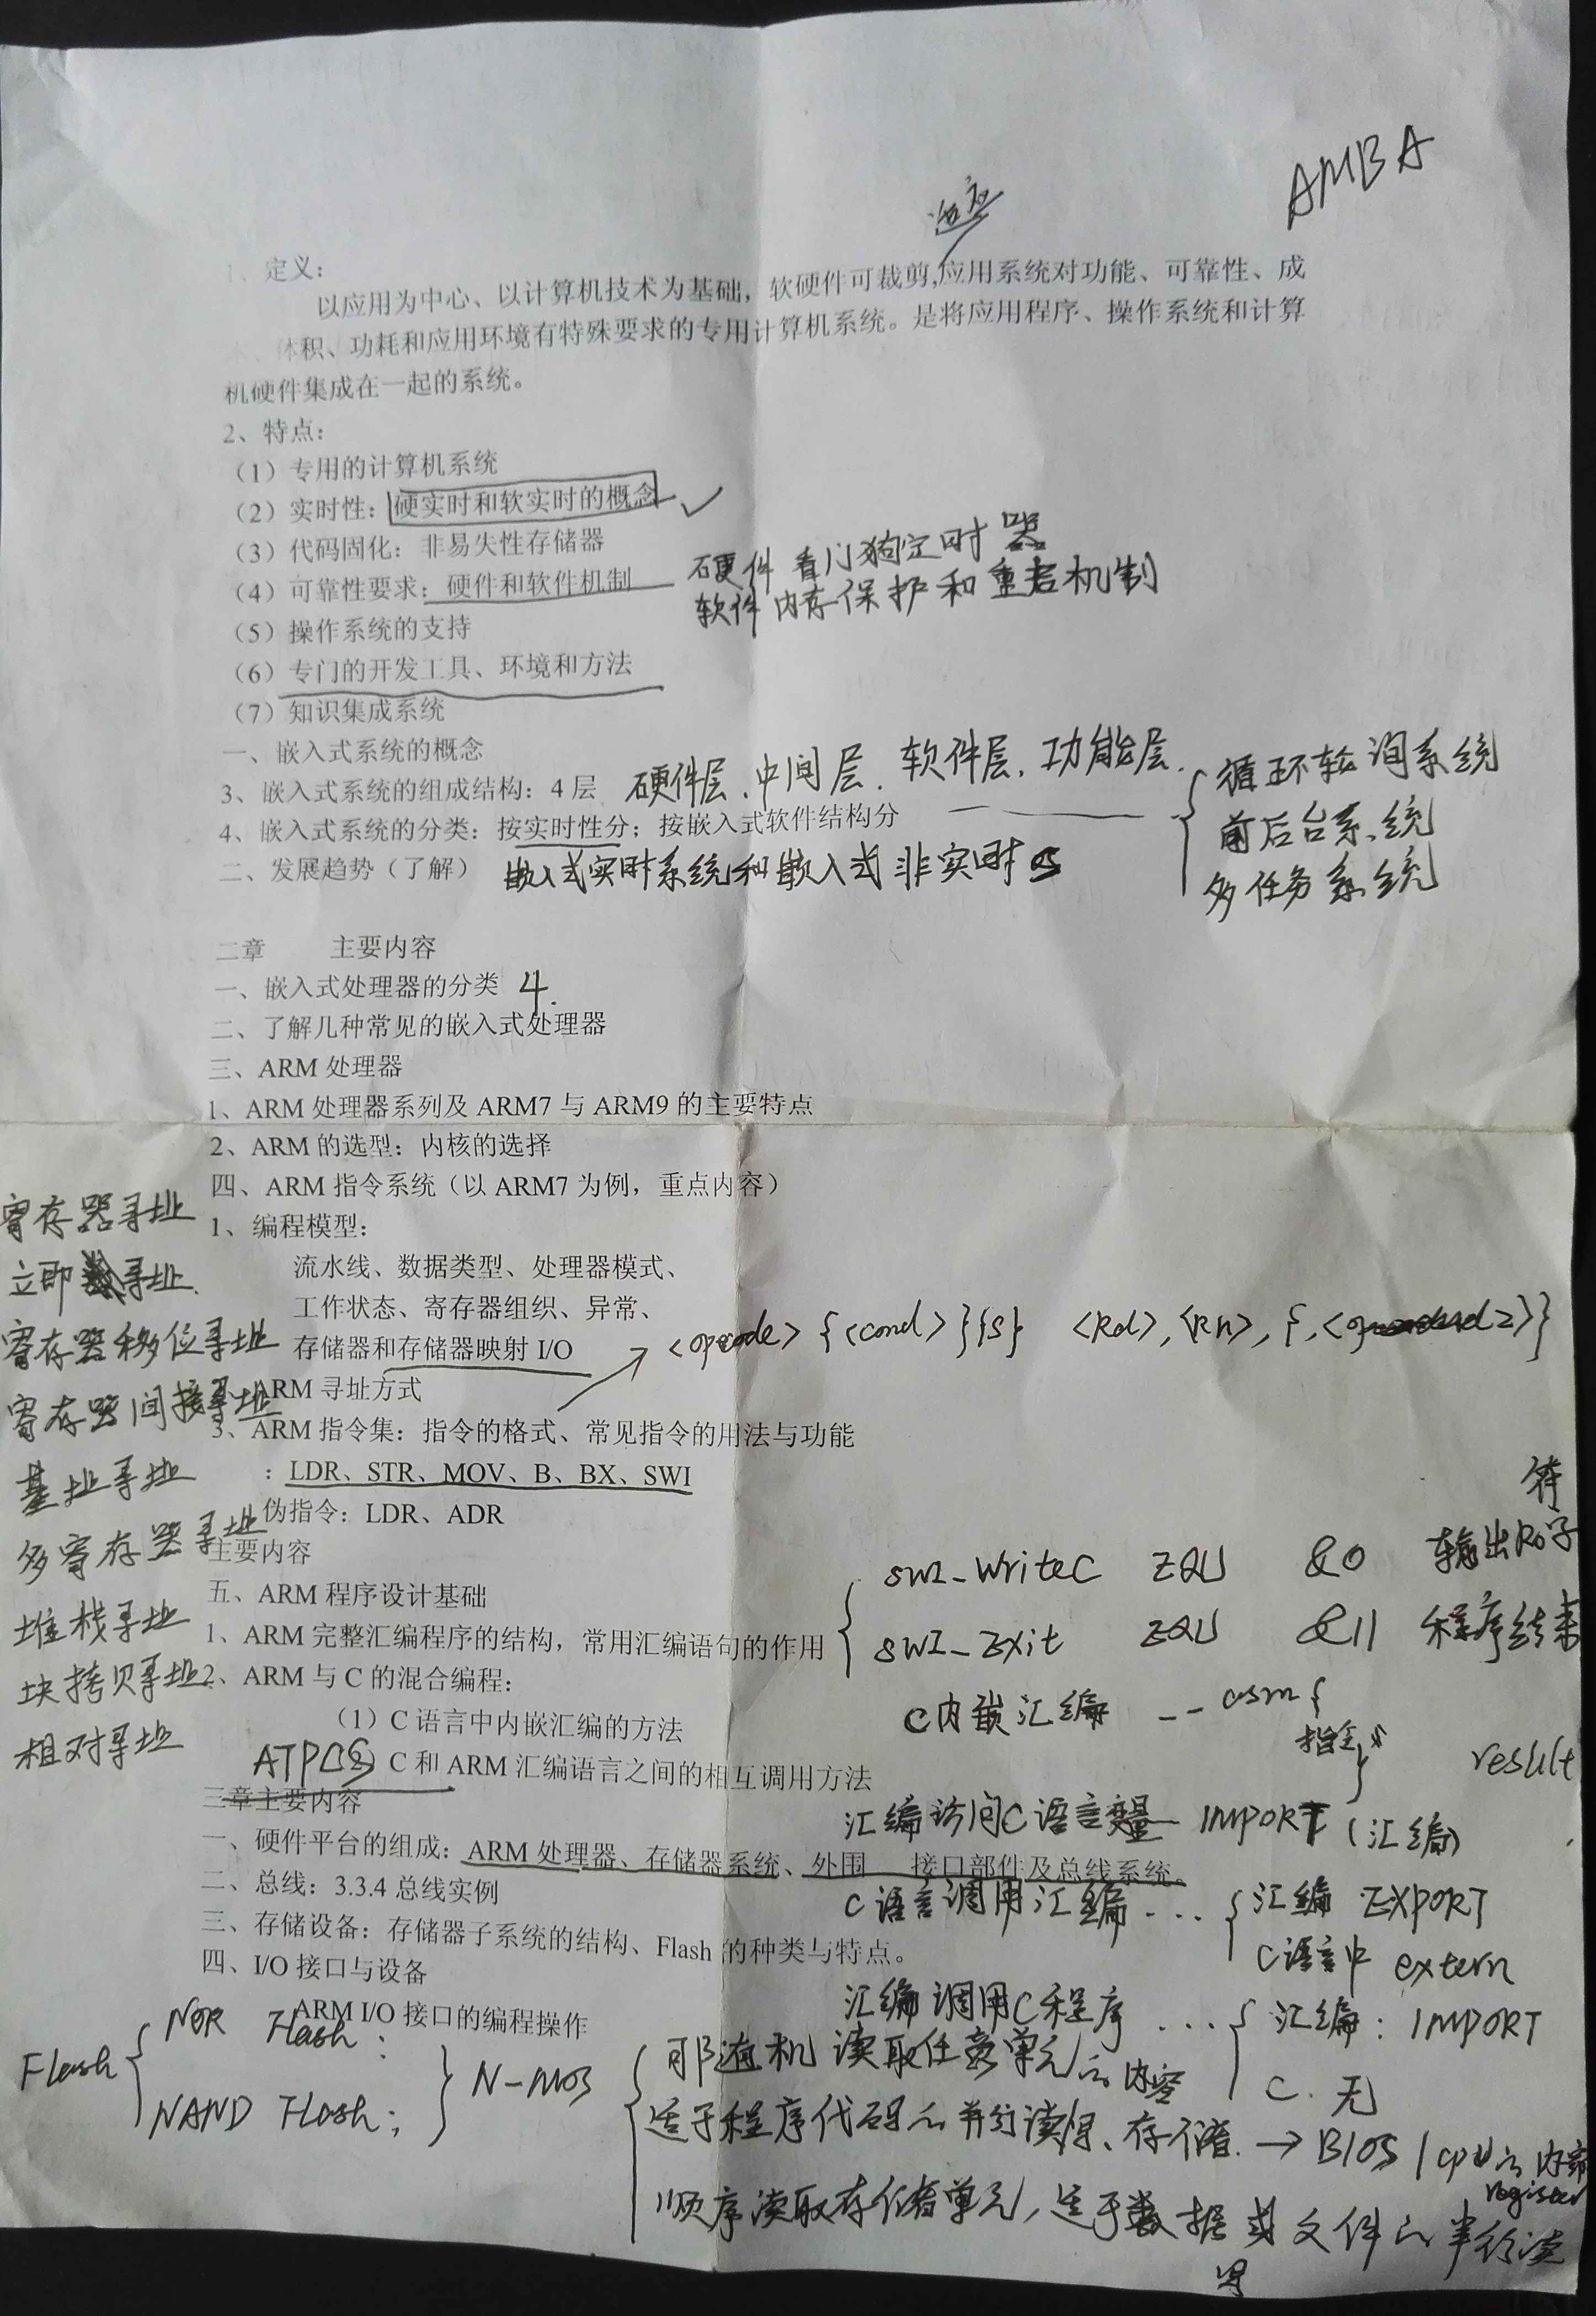 AMBA
适应
1、定义：
以应用为中心、以计算机技术为基础，软硬件可裁剪,应用系统对功能、可靠性、成
、体积、功耗和应用环境有特殊要求的专用计算机系统。是将应用程序、操作系统和计算
机硬件集成在一起的系统。
2、特点：
（1）专用的计算机系统
（2）实时性：硬实时和软实时的概念 ✓
（3）代码固化：非易失性存储器
（4）可靠性要求：硬件和软件机制
硬件 看门狗定时器
软件 内存保护和重启机制
（5）操作系统的支持
（6）专门的开发工具、环境和方法
（7）知识集成系统
一、嵌入式系统的概念
3、嵌入式系统的组成结构：4 层 硬件层、中间层、软件层、功能层.
4、嵌入式系统的分类：按实时性分；按嵌入式软件结构分
循环轮询系统
前后台系统
多任务系统
二、发展趋势（了解） 嵌入式实时系统和嵌入式非实时
二章 主要内容
一、嵌入式处理器的分类 4.
二、了解几种常见的嵌入式处理器
三、ARM 处理器
1、ARM 处理器系列及 ARM7 与 ARM9 的主要特点
2、ARM 的选型：内核的选择
四、ARM 指令系统（以 ARM7 为例，重点内容）
1、编程模型：
流水线、数据类型、处理器模式、
工作状态、寄存器组织、异常、
存储器和存储器映射 I/O
<opcode> {<cond>}{S} <Rd>, <Rn>, {,<operand2>}
ARM 寻址方式
3、ARM 指令集：指令的格式、常见指令的用法与功能
：LDR、STR、MOV、B、BX、SWI
伪指令：LDR、ADR
主要内容
寄存器寻址
立即数寻址.
寄存器移位寻址
寄存器间接寻址
基址寻址
多寄存器寻址
堆栈寻址
块拷贝寻址
相对寻址
五、ARM 程序设计基础
1、ARM 完整汇编程序的结构，常用汇编语句的作用
SWI_WriteC EQU &0 输出R0字符
SWI_Exit EQU &11 程序结束
2、ARM 与 C 的混合编程：
（1）C 语言中内嵌汇编的方法
C内嵌汇编 __asm {
指令
}
result
ATPCS C 和 ARM 汇编语言之间的相互调用方法
三章主要内容
汇编访问C语言变量 IMPORT (汇编)
一、硬件平台的组成：ARM 处理器、存储器系统、外围 接口部件及总线系统。
二、总线：3.3.4 总线实例
C语言调用汇编 ... { 汇编 EXPORT
C语言中 extern
三、存储设备：存储器子系统的结构、Flash 的种类与特点。
四、I/O 接口与设备
汇编调用C程序 ... { 汇编: IMPORT
C. 无
ARM I/O 接口的编程操作
Flash { NOR Flash:
NAND Flash; } N-MOS
机读取任意单元的内容
适于程序代码的并行读写、存储. → BIOS / CPU的内部register
顺序读取存储单元, 适于数据或文件的串行读写